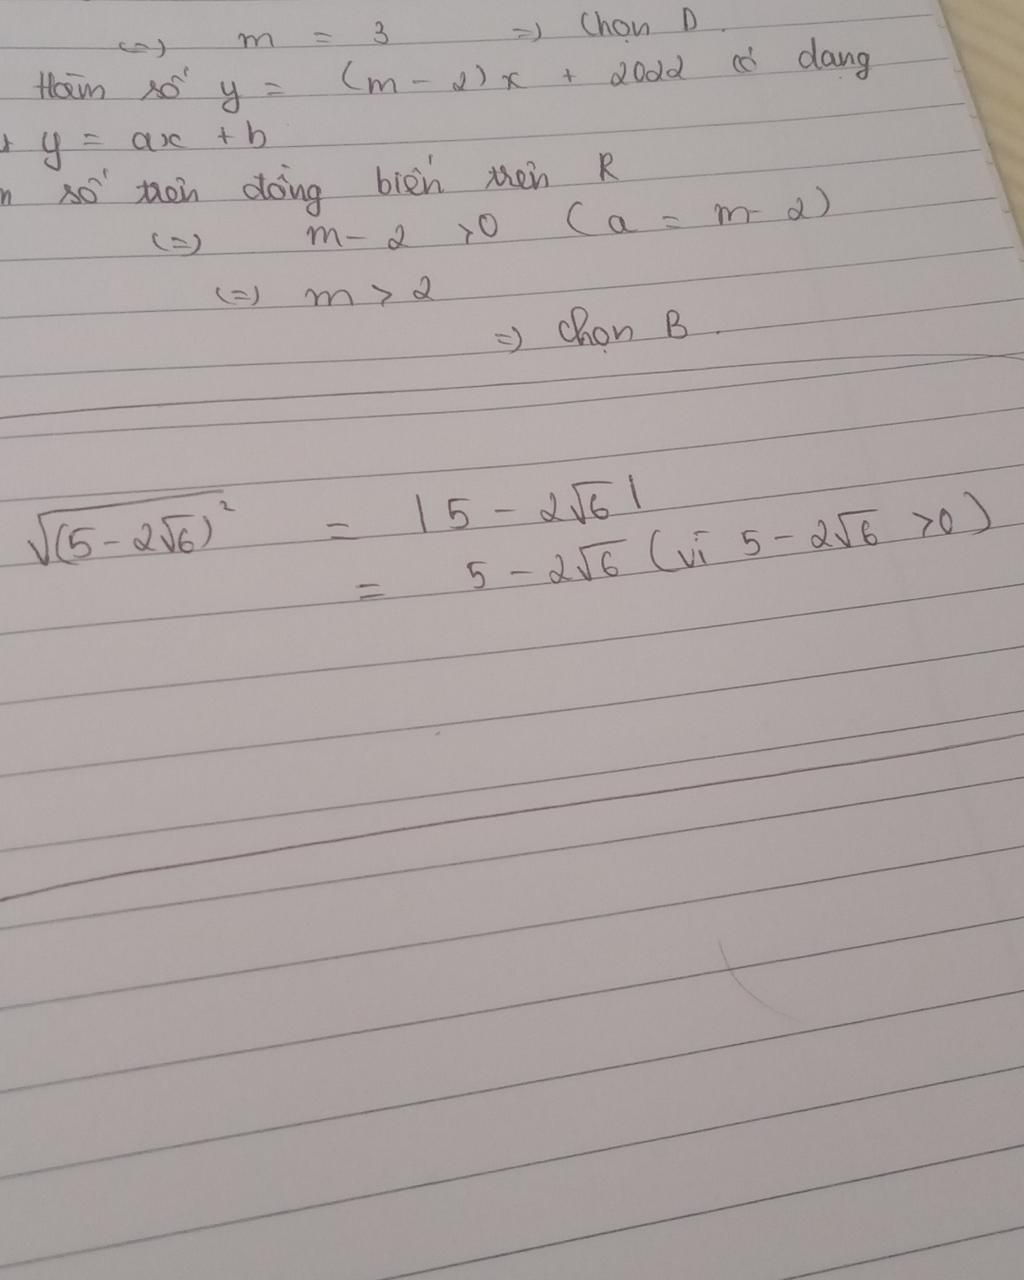 (=) m = 3 => Chọn D.
Hàm số y = (m - 2)x + 2022 có dạng
y = ax + b
số trên đồng biến trên R
(=) m - 2 >0 (a = m - 2)
(=) m > 2
=> Chọn B.
√(5 - 2√6)² = |5 - 2√6|
= 5 - 2√6 (vì 5 - 2√6 >0)